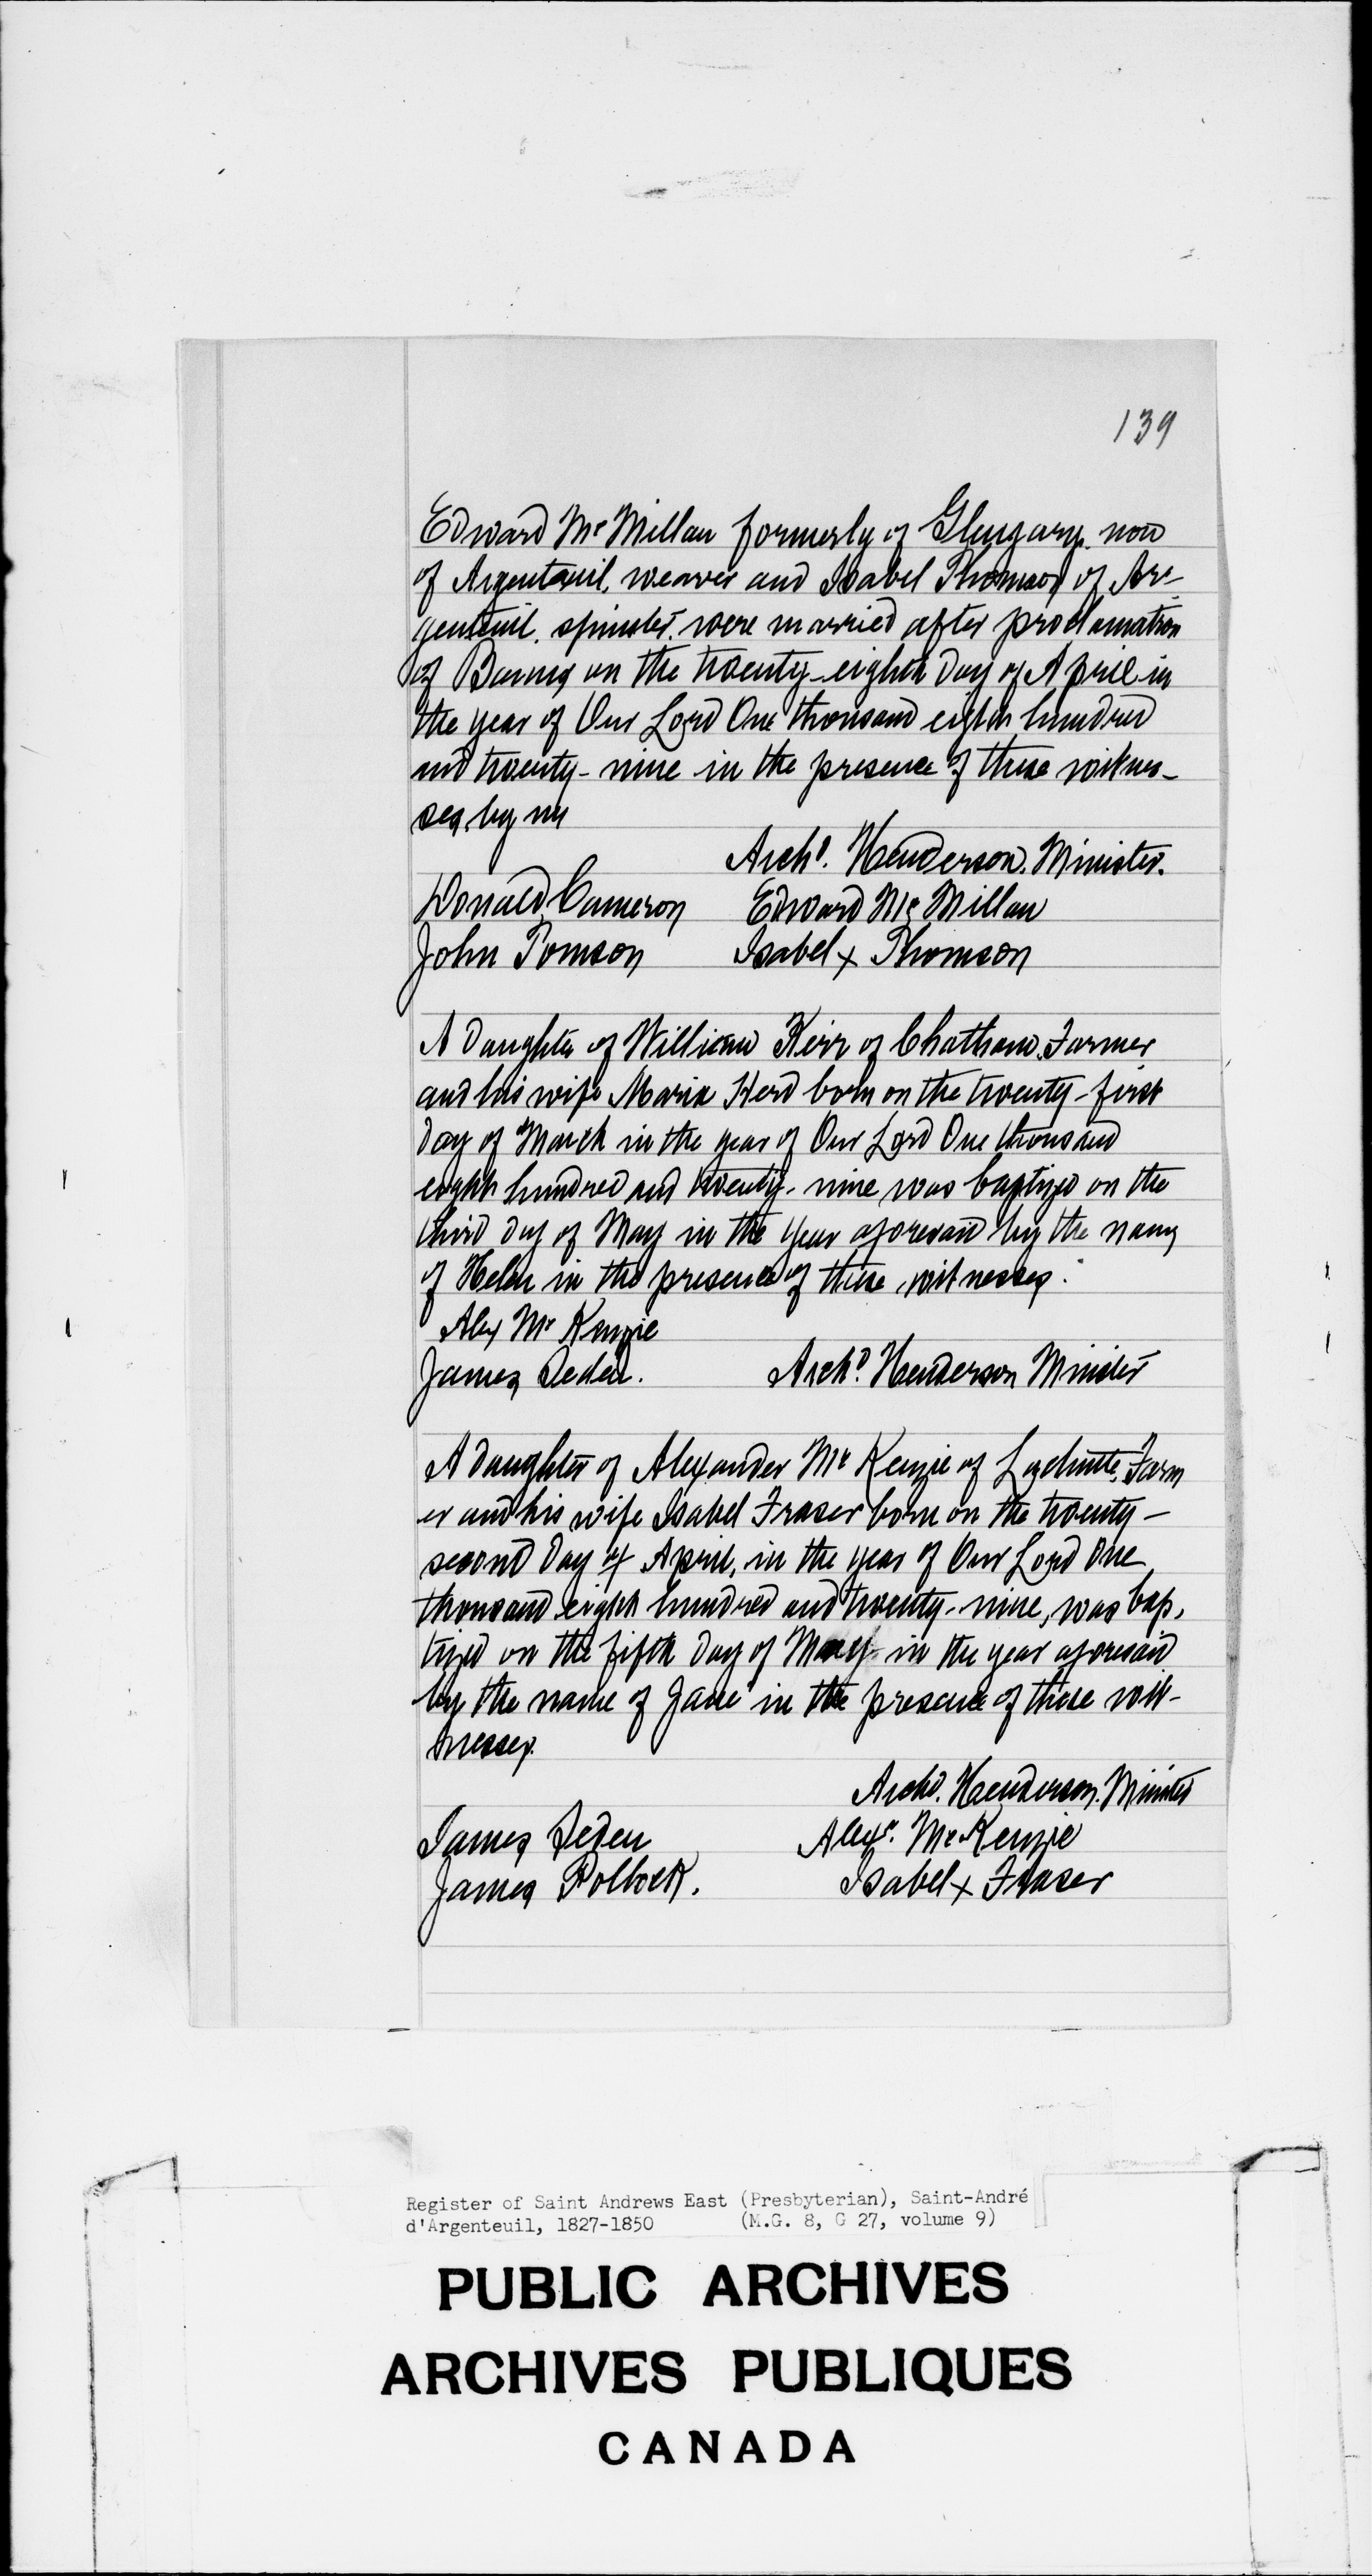 139
Edward Mc Millan formerly of Glengary. now
of Argenteuil, weaver and Isabel Thomson of Ar-
genteuil. spinster. were married after proclamation
of Banns on the twenty-eighth day of April in
the year of Our Lord One thousand eight hundred
and twenty-nine in the presence of these witnes-
ses, by me
Archd. Henderson. Minister.
Donald Cameron Edward Mc Millan
John Tomson Isabel x Thomson
A daughter of William Kerr of Chatham. Farmer
and his wife Maria Herd born on the twenty-first
day of March in the year of Our Lord One thousand
eight hundred and twenty-nine was baptized on the
third day of May in the year aforesaid by the name
of Helen in the presence of these witnesses.
Alex Mc Kenzie
James Deden. Archd. Henderson Minister
A daughter of Alexander Mc Kenzie of Lachute, Farm
er and his wife Isabel Fraser born on the twenty-
second day of April, in the year of Our Lord One
thousand eight hundred and twenty-nine, was bap-
tized on the fifth day of May in the year aforesaid
by the name of Jane in the presence of these wit-
nesses.
Archd. Henderson. Minister
James Deden Alexr. Mc Kenzie
James Pollock. Isabel x Fraser
Register of Saint Andrews East (Presbyterian), Saint-André
d'Argenteuil, 1827-1850 (M.G. 8, G 27, volume 9)
PUBLIC ARCHIVES
ARCHIVES PUBLIQUES
CANADA